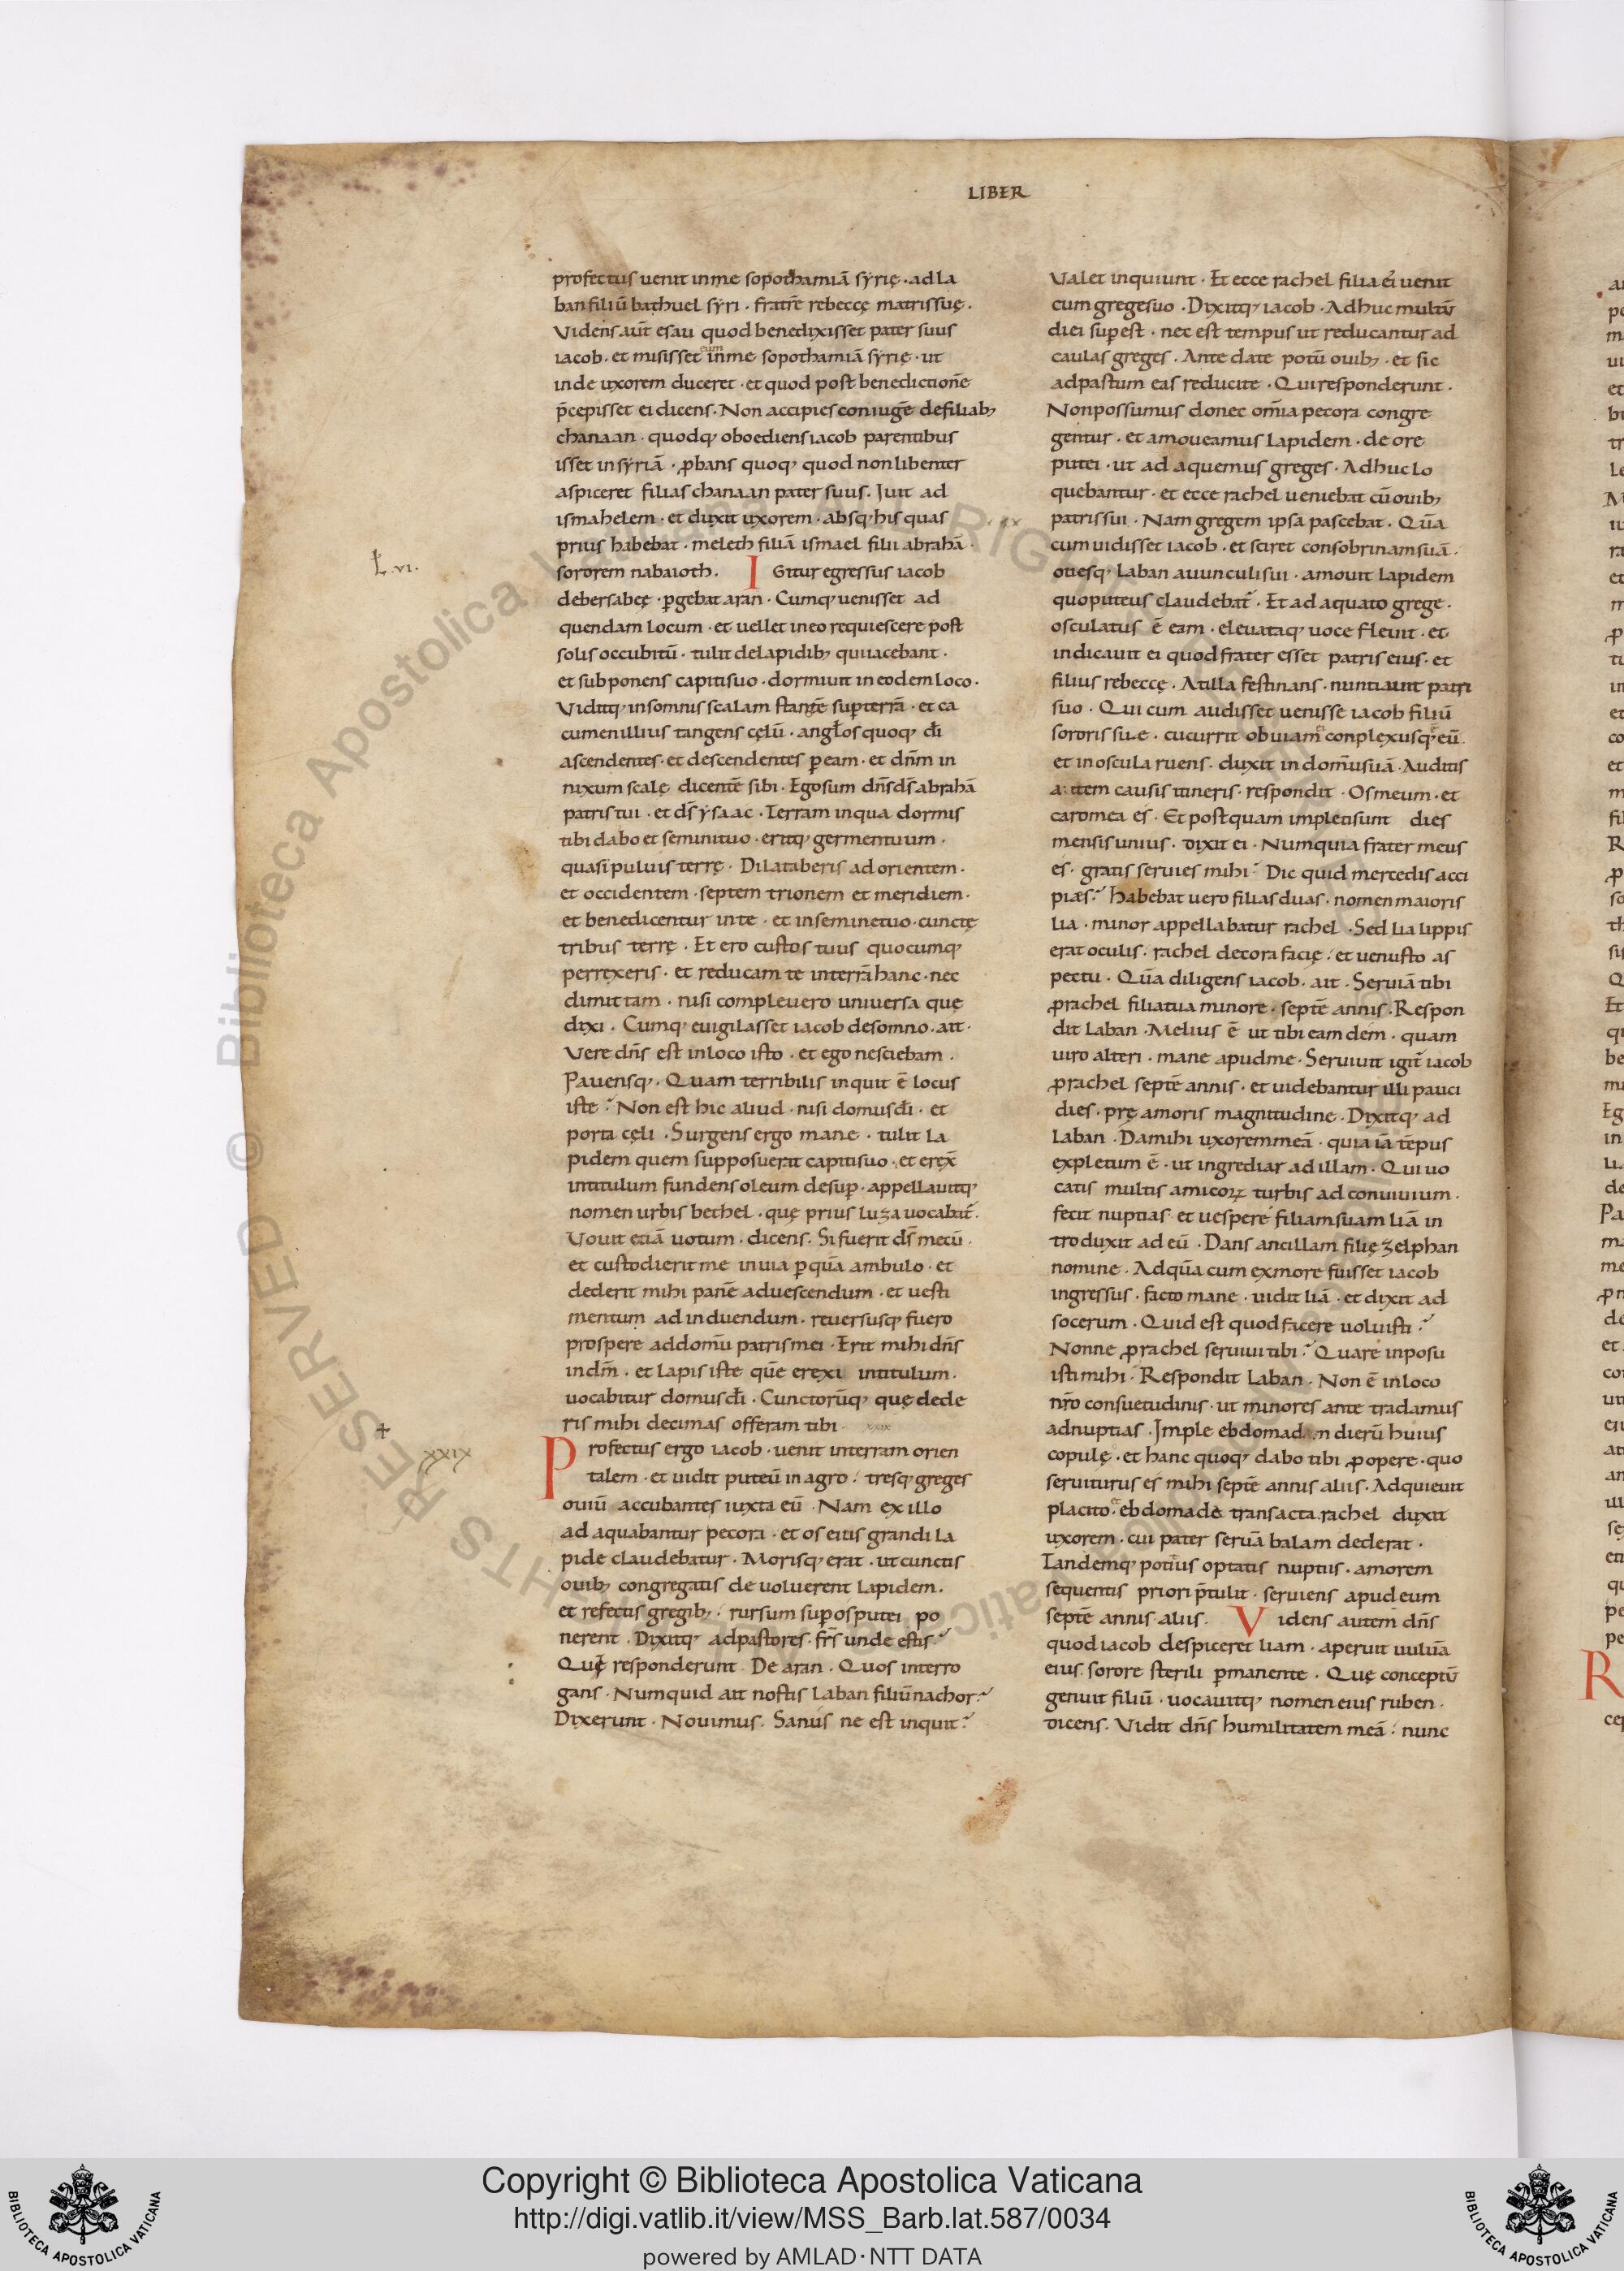 LIBER
profectus uenit inme sopothamiā sẏrię · ad la
ban filiū bathuel sẏri · fratrē rebeccę matris suę ·
Videns aut̄ esau quod benedixisset pater suus
iacob · et misisset eum in me sopothamiā sẏrię · ut
inde uxorem duceret · et quod post benedictionē
p̄cepisset ei dicens · Non accipies coniugē de filiab;
chanaan · quodq; oboediens iacob parentibus
isset in sẏriā · ꝓbans quoq; quod non libenter
aspiceret filias chanaan pater suus · Iuit ad
ismahelem · et duxit uxorem · absq; his quas
prius habebat · meleth filiā ismael filii abrahā ·
L vi.
sororem nabaioth. IGitur egressus iacob
de bersabęę · ꝑgebat aran · Cumq; uenisset ad
quendam locum · et uellet in eo requiescere post
solis occubitū · tulit de lapidib; qui iacebant ·
et subponens capiti suo · dormiuit in eodem loco ·
Viditq; in somnis scalam stantē suꝑ terrā · et ca
cumen illius tangens cęlū · angl̄os quoq; dī
ascendentes · et descendentes ꝑ eam · et dn̄m in
nixum scalę dicentē sibi · Ego sum dn̄s ds̄ abrahā
patris tui · et ds̄ ẏsaac · Terram in qua dormis
tibi dabo et semini tuo · eritq; germen tuum ·
quasi puluis terrę · Dilataberis ad orientem ·
et occidentem · septem trionem et meridiem ·
et benedicentur in te · et in semine tuo · cunctę
tribus terrę · Et ero custos tuus quocumq;
perrexeris · et reducam te in terrā hanc · nec
dimittam · nisi compleuero uniuersa quę
dixi · Cumq; euigilasset iacob de somno · ait ·
Vere dn̄s est in loco isto · et ego nesciebam ·
Pauensq; · Quam terribilis inquit ē locus
iste? Non est hic aliud · nisi domus dī · et
porta cęli · Surgens ergo mane · tulit la
pidem quem supposuerat capiti suo · et erex̄
in titulum fundens oleum desuꝑ · appellauitq;
nomen urbis bethel · quę prius luza uocabat̄ ·
Vouit etiā uotum · dicens · Si fuerit ds̄ mecū ·
et custodierit me in uia ꝑ quā ambulo · et
dederit mihi panē ad uescendum · et uesti
mentum ad induendum · reuersusq; fuero
prospere ad domū patris mei · Erit mihi dn̄s
in dm̄ · et lapis iste quē erexi in titulum ·
uocabitur domus dī · Cunctorūq; quę dede
+
ris mihi decimas offeram tibi · xxix
xxix
Profectus ergo iacob · uenit in terram orien
talem · et uidit puteū in agro : tresq; greges
ouiū accubantes iuxta eū · Nam ex illo
ad aquabantur pecora · et os eius grandi la
pide claudebatur · Morisq; erat · ut cunctis
ouib; congregatis deuoluerent lapidem ·
et refectis gregib; · rursum suꝑ os putei po
nerent · Dixitq; ad pastores · frs̄ unde estis?
Quę responderunt · De aran · Quos interro
gans · Numquid ait nostis laban filiū nachor?
Dixerunt · Nouimus · Sanus ne est inquit?
Valet inquiunt · Et ecce rachel filia ei' uenit
cum grege suo · Dixitq; iacob · Adhuc multū
diei suꝑest · nec est tempus ut reducantur ad
caulas greges · Ante date potū ouib; · et sic
ad pastum eas reducite · Qui responderunt ·
Non possumus donec om̄ia pecora congre
gentur · et amoueamus lapidem · de ore
putei · ut ad aquemus greges · Adhuc lo
quebantur · et ecce rachel ueniebat cū ouib;
patris sui · Nam gregem ipsa pascebat · Quā
cum uidisset iacob · et sciret consobrinam suā ·
ouesq; laban auunculi sui · amouit lapidem
quo puteus claudebat̄ · Et ad aquato grege ·
osculatus ē eam · eleuataq; uoce fleuit · et
indicauit ei quod frater esset patris eius · et
filius rebeccę · At illa festinans · nuntiauit patri
suo · Qui cum audisset uenisse iacob filiū
sororis suae · cucurrit obuiam ei conplexusq; eū ·
et in oscula ruens · duxit in domū suā · Auditis
autem causis itineris · respondit · Os meum · et
caro mea es · Et postquam impleti sunt dies
mensis unius · dixit ei · Num quia frater meus
es · gratis seruies mihi? Dic quid mercedis acci
pias? habebat uero filias duas · nomen maioris
lia · minor appellabatur rachel · Sed lia lippis
erat oculis · rachel decora facię · et uenusto as
pectu · Quā diligens iacob · ait · Seruiā tibi
ꝓ rachel filia tua minore · septē annis · Respon
dit laban · Melius ē ut tibi eam dem · quam
uiro alteri · mane apud me · Seruiuit igit̄ iacob
ꝓ rachel septē annis · et uidebantur illi pauci
dies · prę amoris magnitudine · Dixitq; ad
laban · Da mihi uxorem meā · quia iā tēpus
expletum ē · ut ingrediar ad illam · Qui uo
catis multis amicoꝝ turbis ad conuiuium ·
fecit nuptias · et uespere filiam suam liā in
troduxit ad eū · Dans ancillam filię zelphan
nomine · Ad quā cum ex more fuisset iacob
ingressus · facto mane · uidit liā · et dixit ad
socerum · Quid est quod facere uoluisti?
Nonne ꝓ rachel seruiui tibi? Quare inposu
isti mihi · Respondit laban · Non ē in loco
nr̄o consuetudinis · ut minores ante tradamus
ad nuptias · Imple ebdomadam dierū huius
copulę · et hanc quoq; dabo tibi ꝓ opere · quo
seruiturus es mihi septē annis aliis · Adquieuit
placito · et ebdomade transacta · rachel duxit
uxorem · cui pater seruā balam dederat ·
Tandemq; potitus optatis nuptiis · amorem
sequentis priori p̄tulit · seruiens apud eum
septē annis aliis · Videns autem dn̄s
quod iacob despiceret liam · aperuit uuluā
eius · sorore sterili ꝑmanente · Quę conceptū
genuit filiū · uocauitq; nomen eius ruben ·
dicens · Vidit dn̄s humilitatem meā : nunc
Copyright © Biblioteca Apostolica Vaticana
http://digi.vatlib.it/view/MSS_Barb.lat.587/0034
powered by AMLAD·NTT DATA
BIBLIOTECA APOSTOLICA VATICANA
BIBLIOTECA APOSTOLICA VATICANA